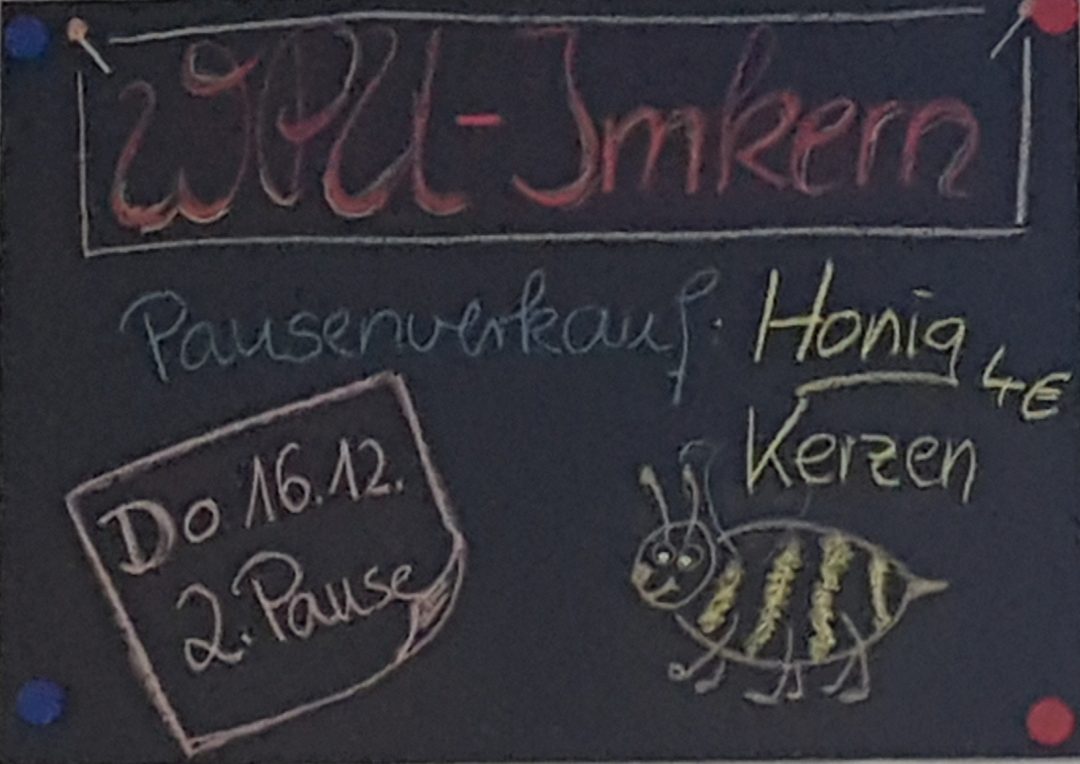 WPU-Imkern
Pausenverkauf: Honig
4€
Kerzen
Do 16.12.
2. Pause